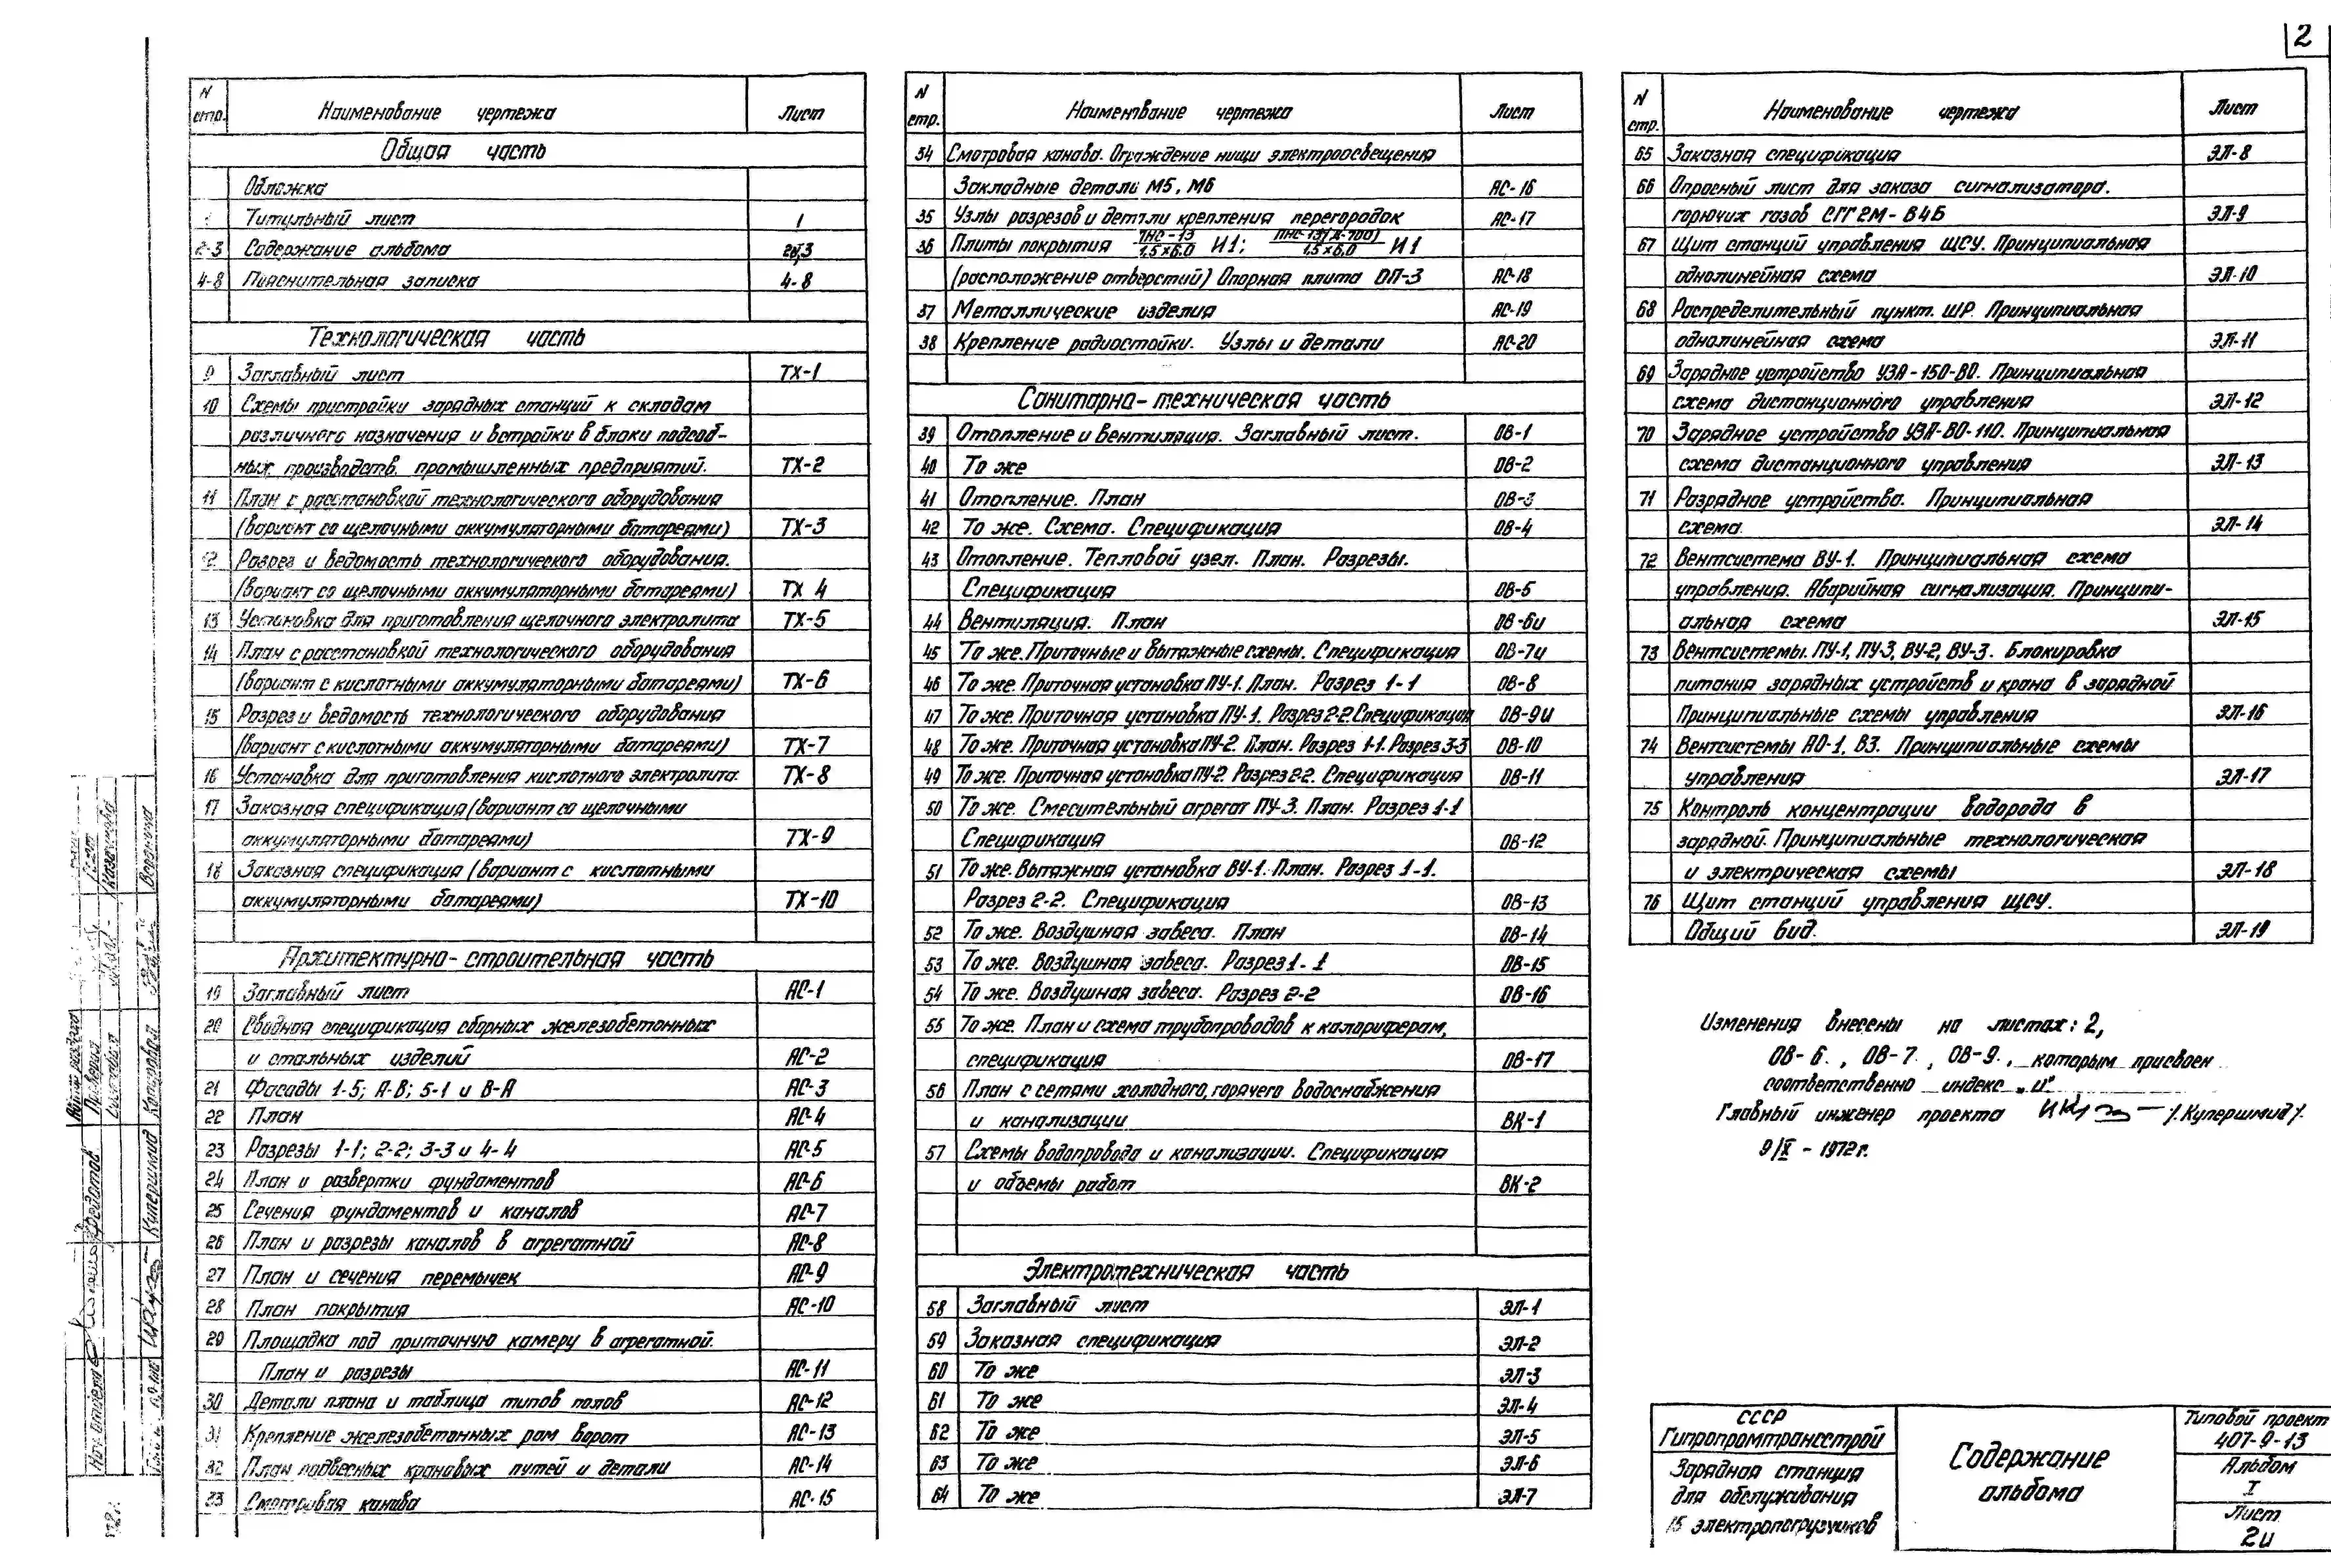 2
N стр. Наименование чертежа Лист
Общая часть
Обложка
1 Титульный лист 1
2-3 Содержание альбома 2и,3
4-8 Пояснительная записка 4-8
Технологическая часть
9 Заглавный лист ТХ-1
10 Схемы пристройки зарядных станций к складам
различного назначения и встройки в блоки подсоб-
ных производств промышленных предприятий. ТХ-2
11 План с расстановкой технологического оборудования
(вариант со щелочными аккумуляторными батареями) ТХ-3
12 Разрез и ведомость технологического оборудования.
(вариант со щелочными аккумуляторными батареями) ТХ 4
13 Установка для приготовления щелочного электролита ТХ-5
14 План с расстановкой технологического оборудования
(вариант с кислотными аккумуляторными батареями) ТХ-6
15 Разрез и ведомость технологического оборудования
(вариант с кислотными аккумуляторными батареями) ТХ-7
16 Установка для приготовления кислотного электролита. ТХ-8
17 Заказная спецификация (вариант со щелочными
аккумуляторными батареями) ТХ-9
18 Заказная спецификация (вариант с кислотными
аккумуляторными батареями) ТХ-10
Архитектурно-строительная часть
19 Заглавный лист АС-1
20 Сводная спецификация сборных железобетонных
и стальных изделий АС-2
21 Фасады 1-5; А-В; 5-1 и В-А АС-3
22 План АС-4
23 Разрезы 1-1; 2-2; 3-3 и 4-4 АС-5
24 План и развертки фундаментов АС-6
25 Сечения фундаментов и каналов АС-7
26 План и разрезы каналов в агрегатной АС-8
27 План и сечения перемычек АС-9
28 План покрытия АС-10
29 Площадка под приточную камеру в агрегатной.
План и разрезы АС-11
30 Детали плана и таблица типов полов АС-12
31 Крепление железобетонных рам ворот АС-13
32 План подвесных крановых путей и детали АС-14
33 Смотровая канава АС-15
N стр. Наименование чертежа Лист
34 Смотровая канава. Ограждение ниши электроосвещения
Закладные детали М5, М6 АС-16
35 Узлы разрезов и детали крепления перегородок АС-17
36 Плиты покрытия ПНС-13/1,5×6,0 И1; ПНС-13(Х-700)/1,5×6,0 И1
(расположение отверстий) Опорная плита ОП-3 АС-18
37 Металлические изделия АС-19
38 Крепление радиостойки. Узлы и детали АС-20
Санитарно-техническая часть
39 Отопление и вентиляция. Заглавный лист. ОВ-1
40 То же ОВ-2
41 Отопление. План ОВ-3
42 То же. Схема. Спецификация ОВ-4
43 Отопление. Тепловой узел. План. Разрезы.
Спецификация ОВ-5
44 Вентиляция. План ОВ-6и
45 То же. Приточные и вытяжные схемы. Спецификация ОВ-7и
46 То же. Приточная установка ПУ-1. План. Разрез 1-1 ОВ-8
47 То же. Приточная установка ПУ-1. Разрез 2-2. Спецификация ОВ-9и
48 То же. Приточная установка ПУ-2. План. Разрез 1-1. Разрез 3-3 ОВ-10
49 То же. Приточная установка ПУ-2. Разрез 2-2. Спецификация ОВ-11
50 То же. Смесительный агрегат ПУ-3. План. Разрез 1-1
Спецификация ОВ-12
51 То же. Вытяжная установка ВУ-1. План. Разрез 1-1.
Разрез 2-2. Спецификация ОВ-13
52 То же. Воздушная завеса. План ОВ-14
53 То же. Воздушная завеса. Разрез 1-1 ОВ-15
54 То же. Воздушная завеса. Разрез 2-2 ОВ-16
55 То же. План и схема трубопроводов к калориферам,
спецификация ОВ-17
56 План с сетями холодного, горячего водоснабжения
и канализации ВК-1
57 Схемы водопровода и канализации. Спецификация
и объемы работ ВК-2
Электротехническая часть
58 Заглавный лист ЭЛ-1
59 Заказная спецификация ЭЛ-2
60 То же ЭЛ-3
61 То же ЭЛ-4
62 То же ЭЛ-5
63 То же ЭЛ-6
64 То же ЭЛ-7
N стр. Наименование чертежа Лист
65 Заказная спецификация ЭЛ-8
66 Опросный лист для заказа сигнализатора.
горючих газов СГГ2М-В4Б ЭЛ-9
67 Щит станций управления ЩСУ. Принципиальная
однолинейная схема ЭЛ-10
68 Распределительный пункт. ШР. Принципиальная
однолинейная схема ЭЛ-11
69 Зарядное устройство УЗА-150-80. Принципиальная
схема дистанционного управления ЭЛ-12
70 Зарядное устройство УЗА-80-110. Принципиальная
схема дистанционного управления ЭЛ-13
71 Разрядное устройства. Принципиальная
схема. ЭЛ-14
72 Вентсистема ВУ-1. Принципиальная схема
управления. Аварийная сигнализация. Принципи-
альная схема ЭЛ-15
73 Вентсистемы. ПУ-1, ПУ-3, ВУ-2, ВУ-3. Блокировка
питания зарядных устройств и крана в зарядной
Принципиальные схемы управления ЭЛ-16
74 Вентсистемы АО-1, ВЗ. Принципиальные схемы
управления ЭЛ-17
75 Контроль концентрации водорода в
зарядной. Принципиальные технологическая
и электрическая схемы ЭЛ-18
76 Щит станций управления ЩСУ.
Общий вид. ЭЛ-19
Изменения внесены на листах: 2,
ОВ-6., ОВ-7., ОВ-9., которым присвоен
соответственно индекс „и"
Главный инженер проекта /Купершмид/.
9/X - 1972г.
СССР
Гипропромтрансстрой
Зарядная станция
для обслуживания
15 электропогрузчиков
Содержание
альбома
Типовой проект
407-9-13
Альбом
I
Лист
2и
Купершмид
Проверил